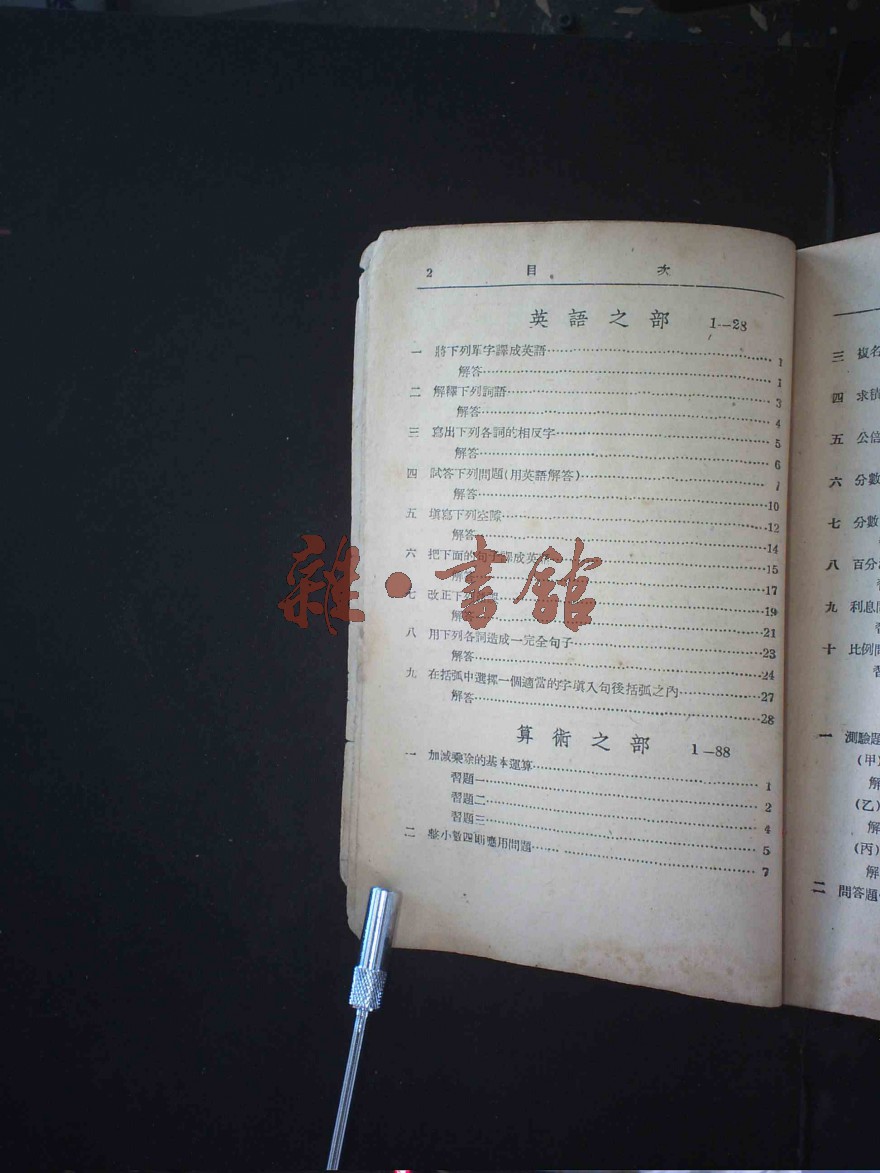 2 目 次
英語之部 1—28
一 將下列單字譯成英語 1
解答 1
二 解釋下列詞語 3
解答 4
三 寫出下列各詞的相反字 5
解答 6
四 試答下列問題(用英語解答) 7
解答 10
五 填寫下列空隙 12
解答 14
六 把下面的句子譯成英 15
解答 17
七 改正下列 19
解答 21
八 用下列各詞造成一完全句子 23
解答 24
九 在括弧中選擇一個適當的字填入句後括弧之內 27
解答 28
算術之部 1—88
一 加減乘除的基本運算 1
習題一 2
習題二 4
習題三 5
二 整小數四則應用問題 7
三 複名
四 求積
五 公倍
六 分數
七 分數
八 百分
習
九 利息
習
十 比例
習
一 測驗題
(甲)
解
(乙)
解
(丙)
解
二 問答題
雜·書館